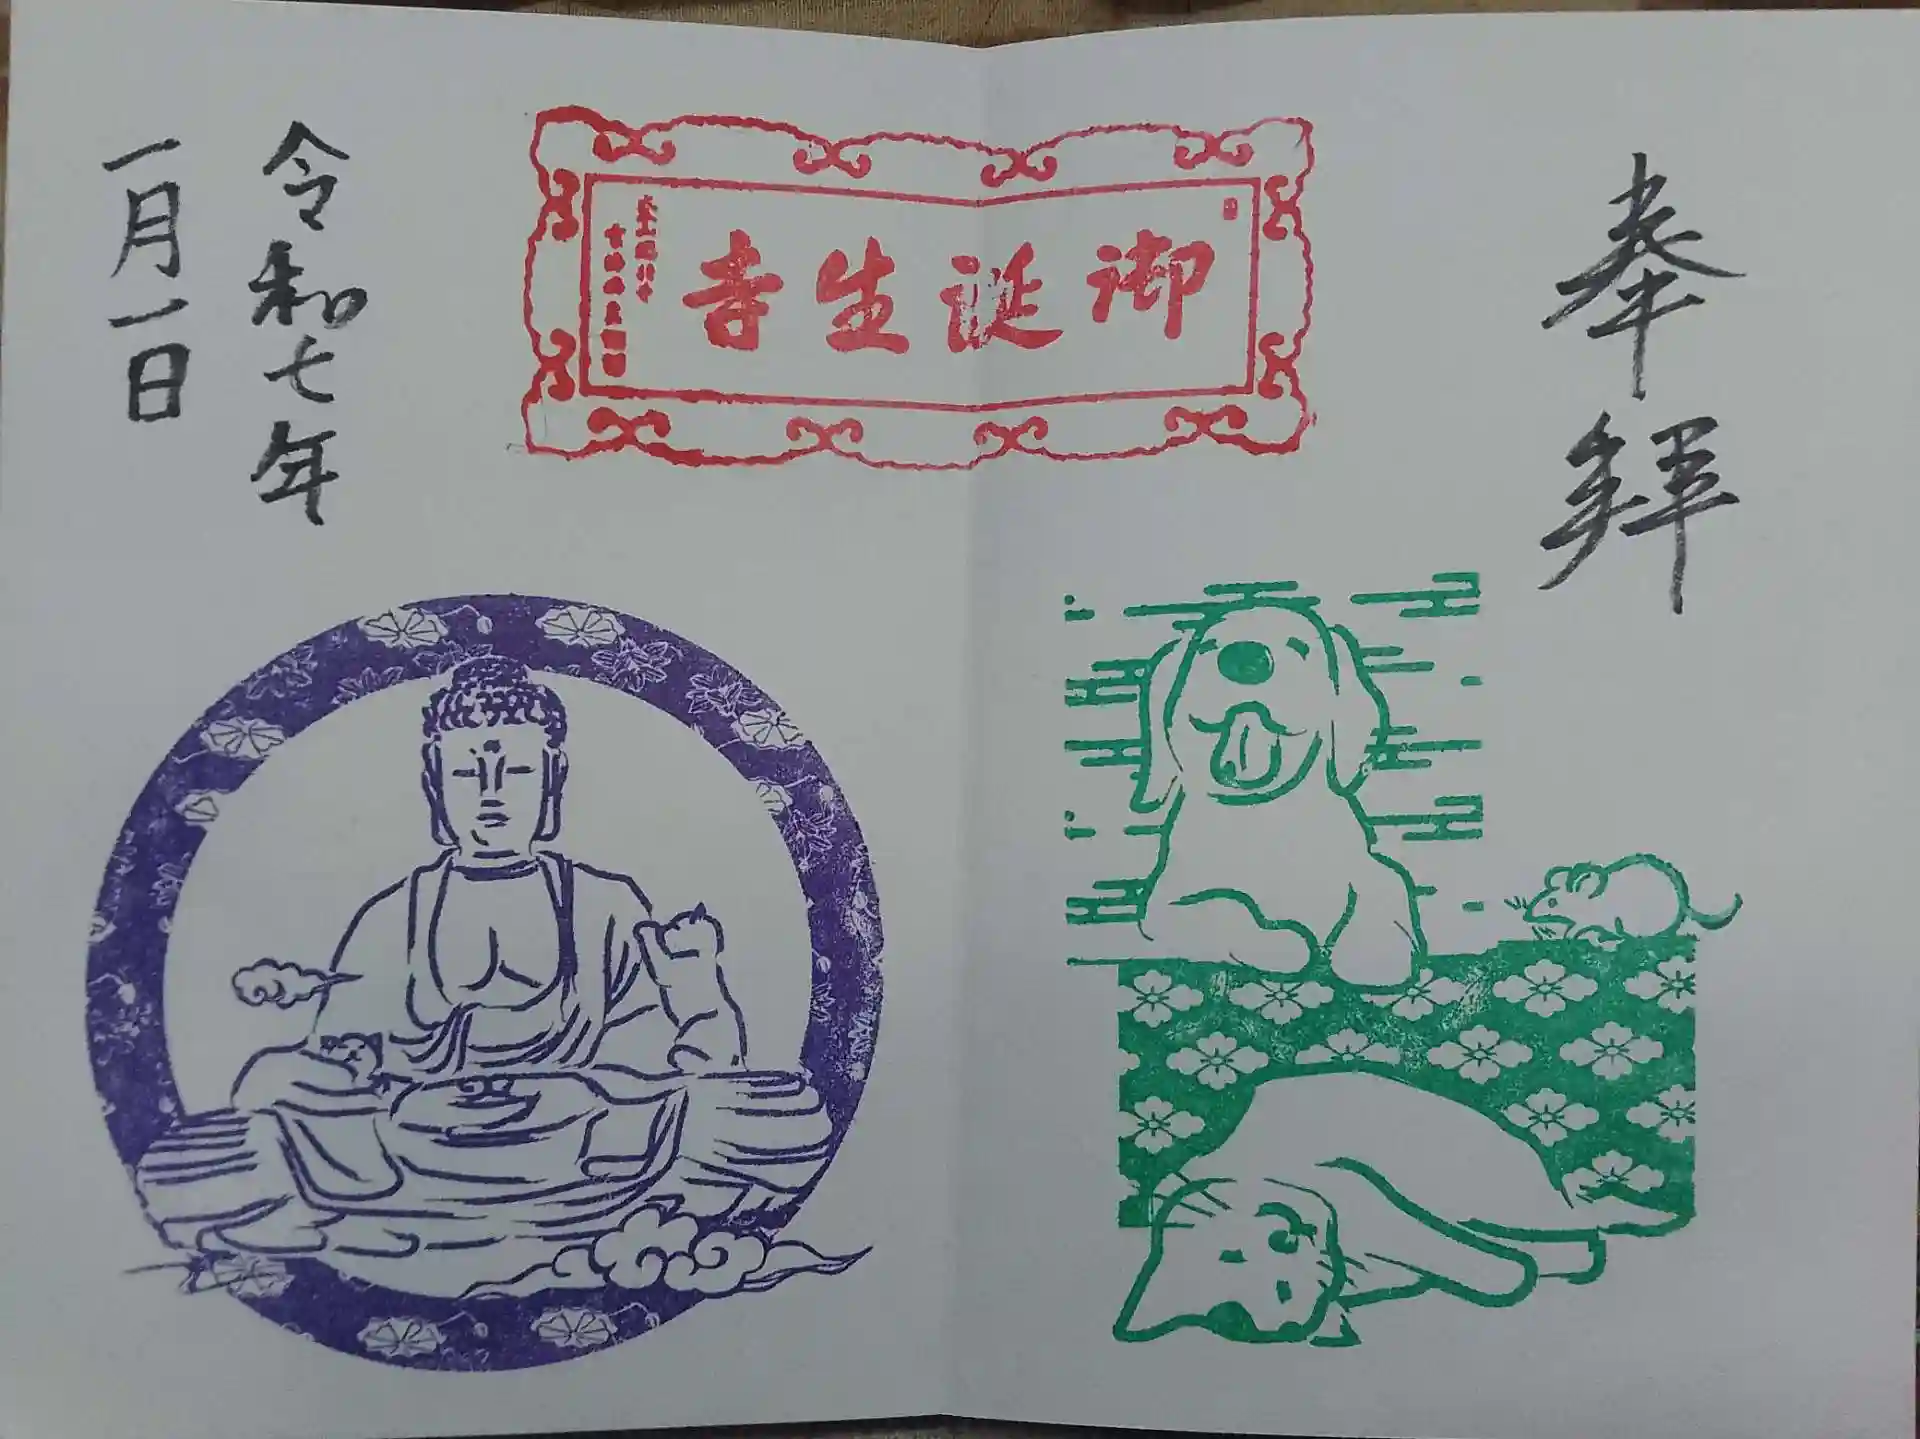 奉拝
御誕生寺
令和七年
一月一日